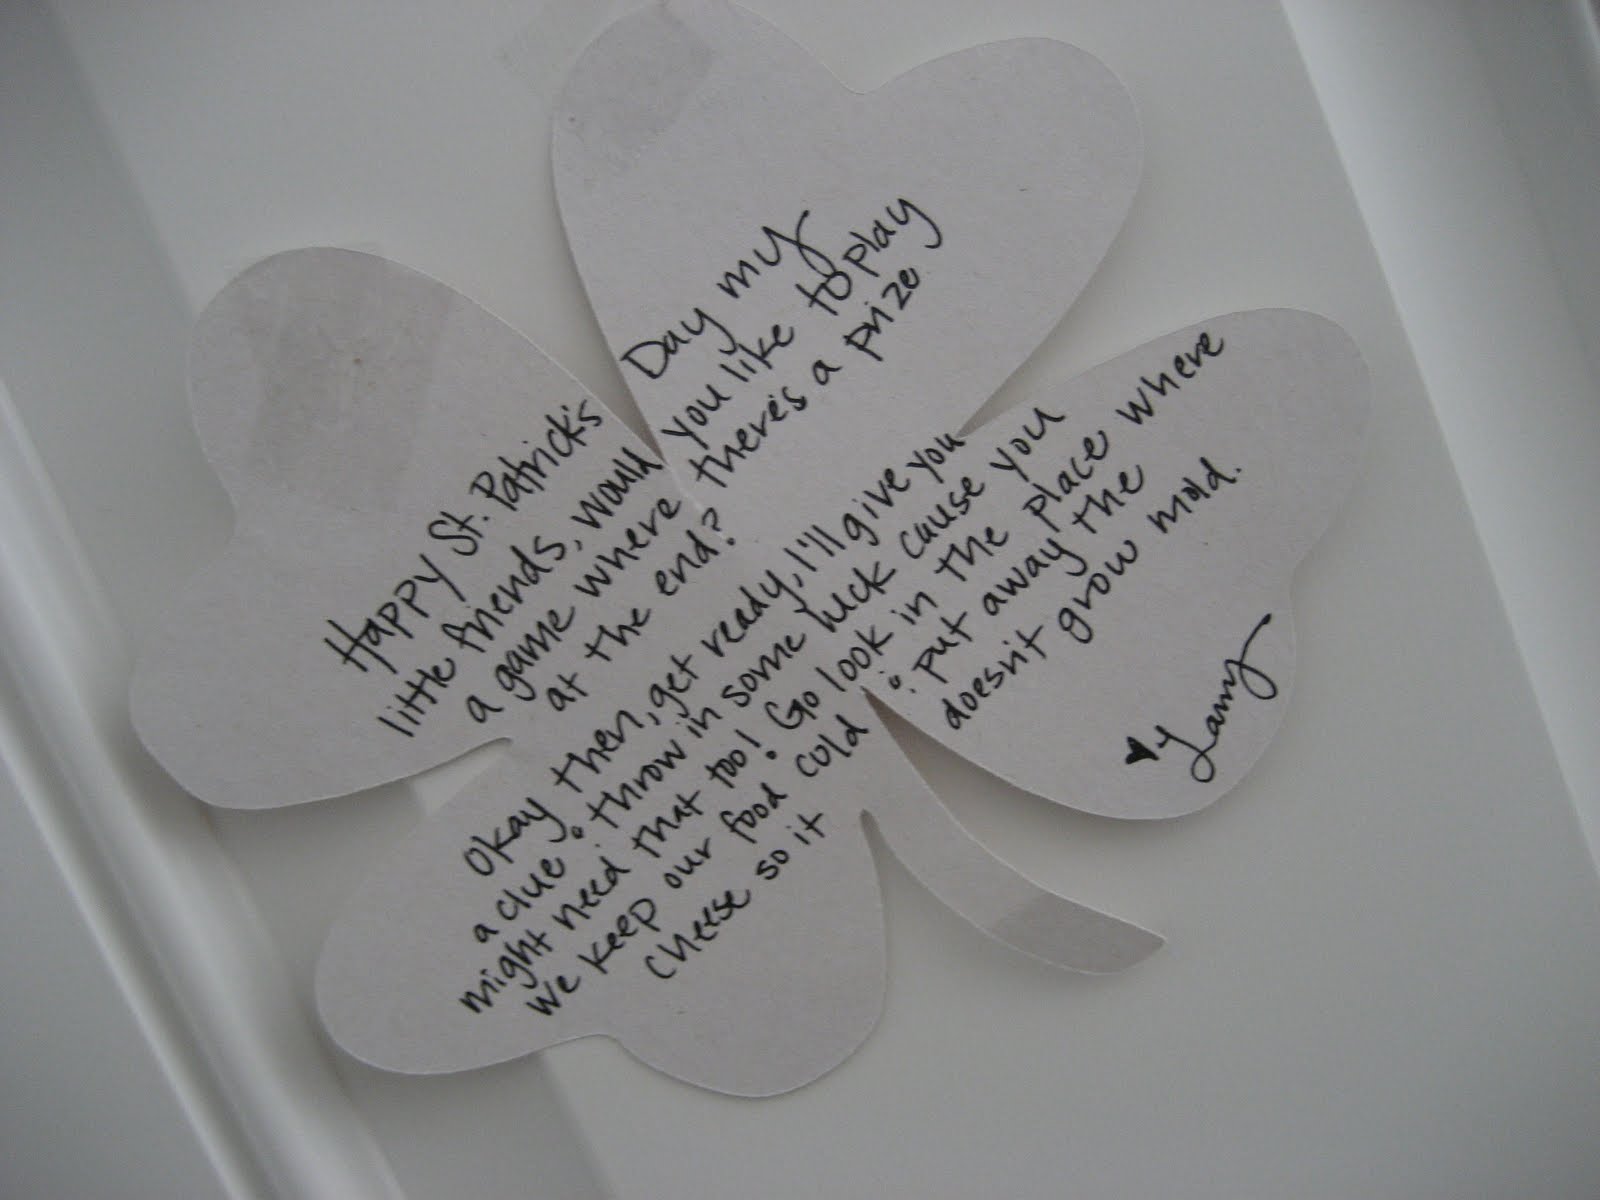 Happy St. Patrick's Day my
little friends, would you like to play
a game where there's a prize
at the end?
Okay then, get ready, I'll give you
a clue & throw in some luck cause you
might need that too! Go look in the place where
we keep our food cold & put away the
cheese so it doesn't grow mold.
♥ Larry